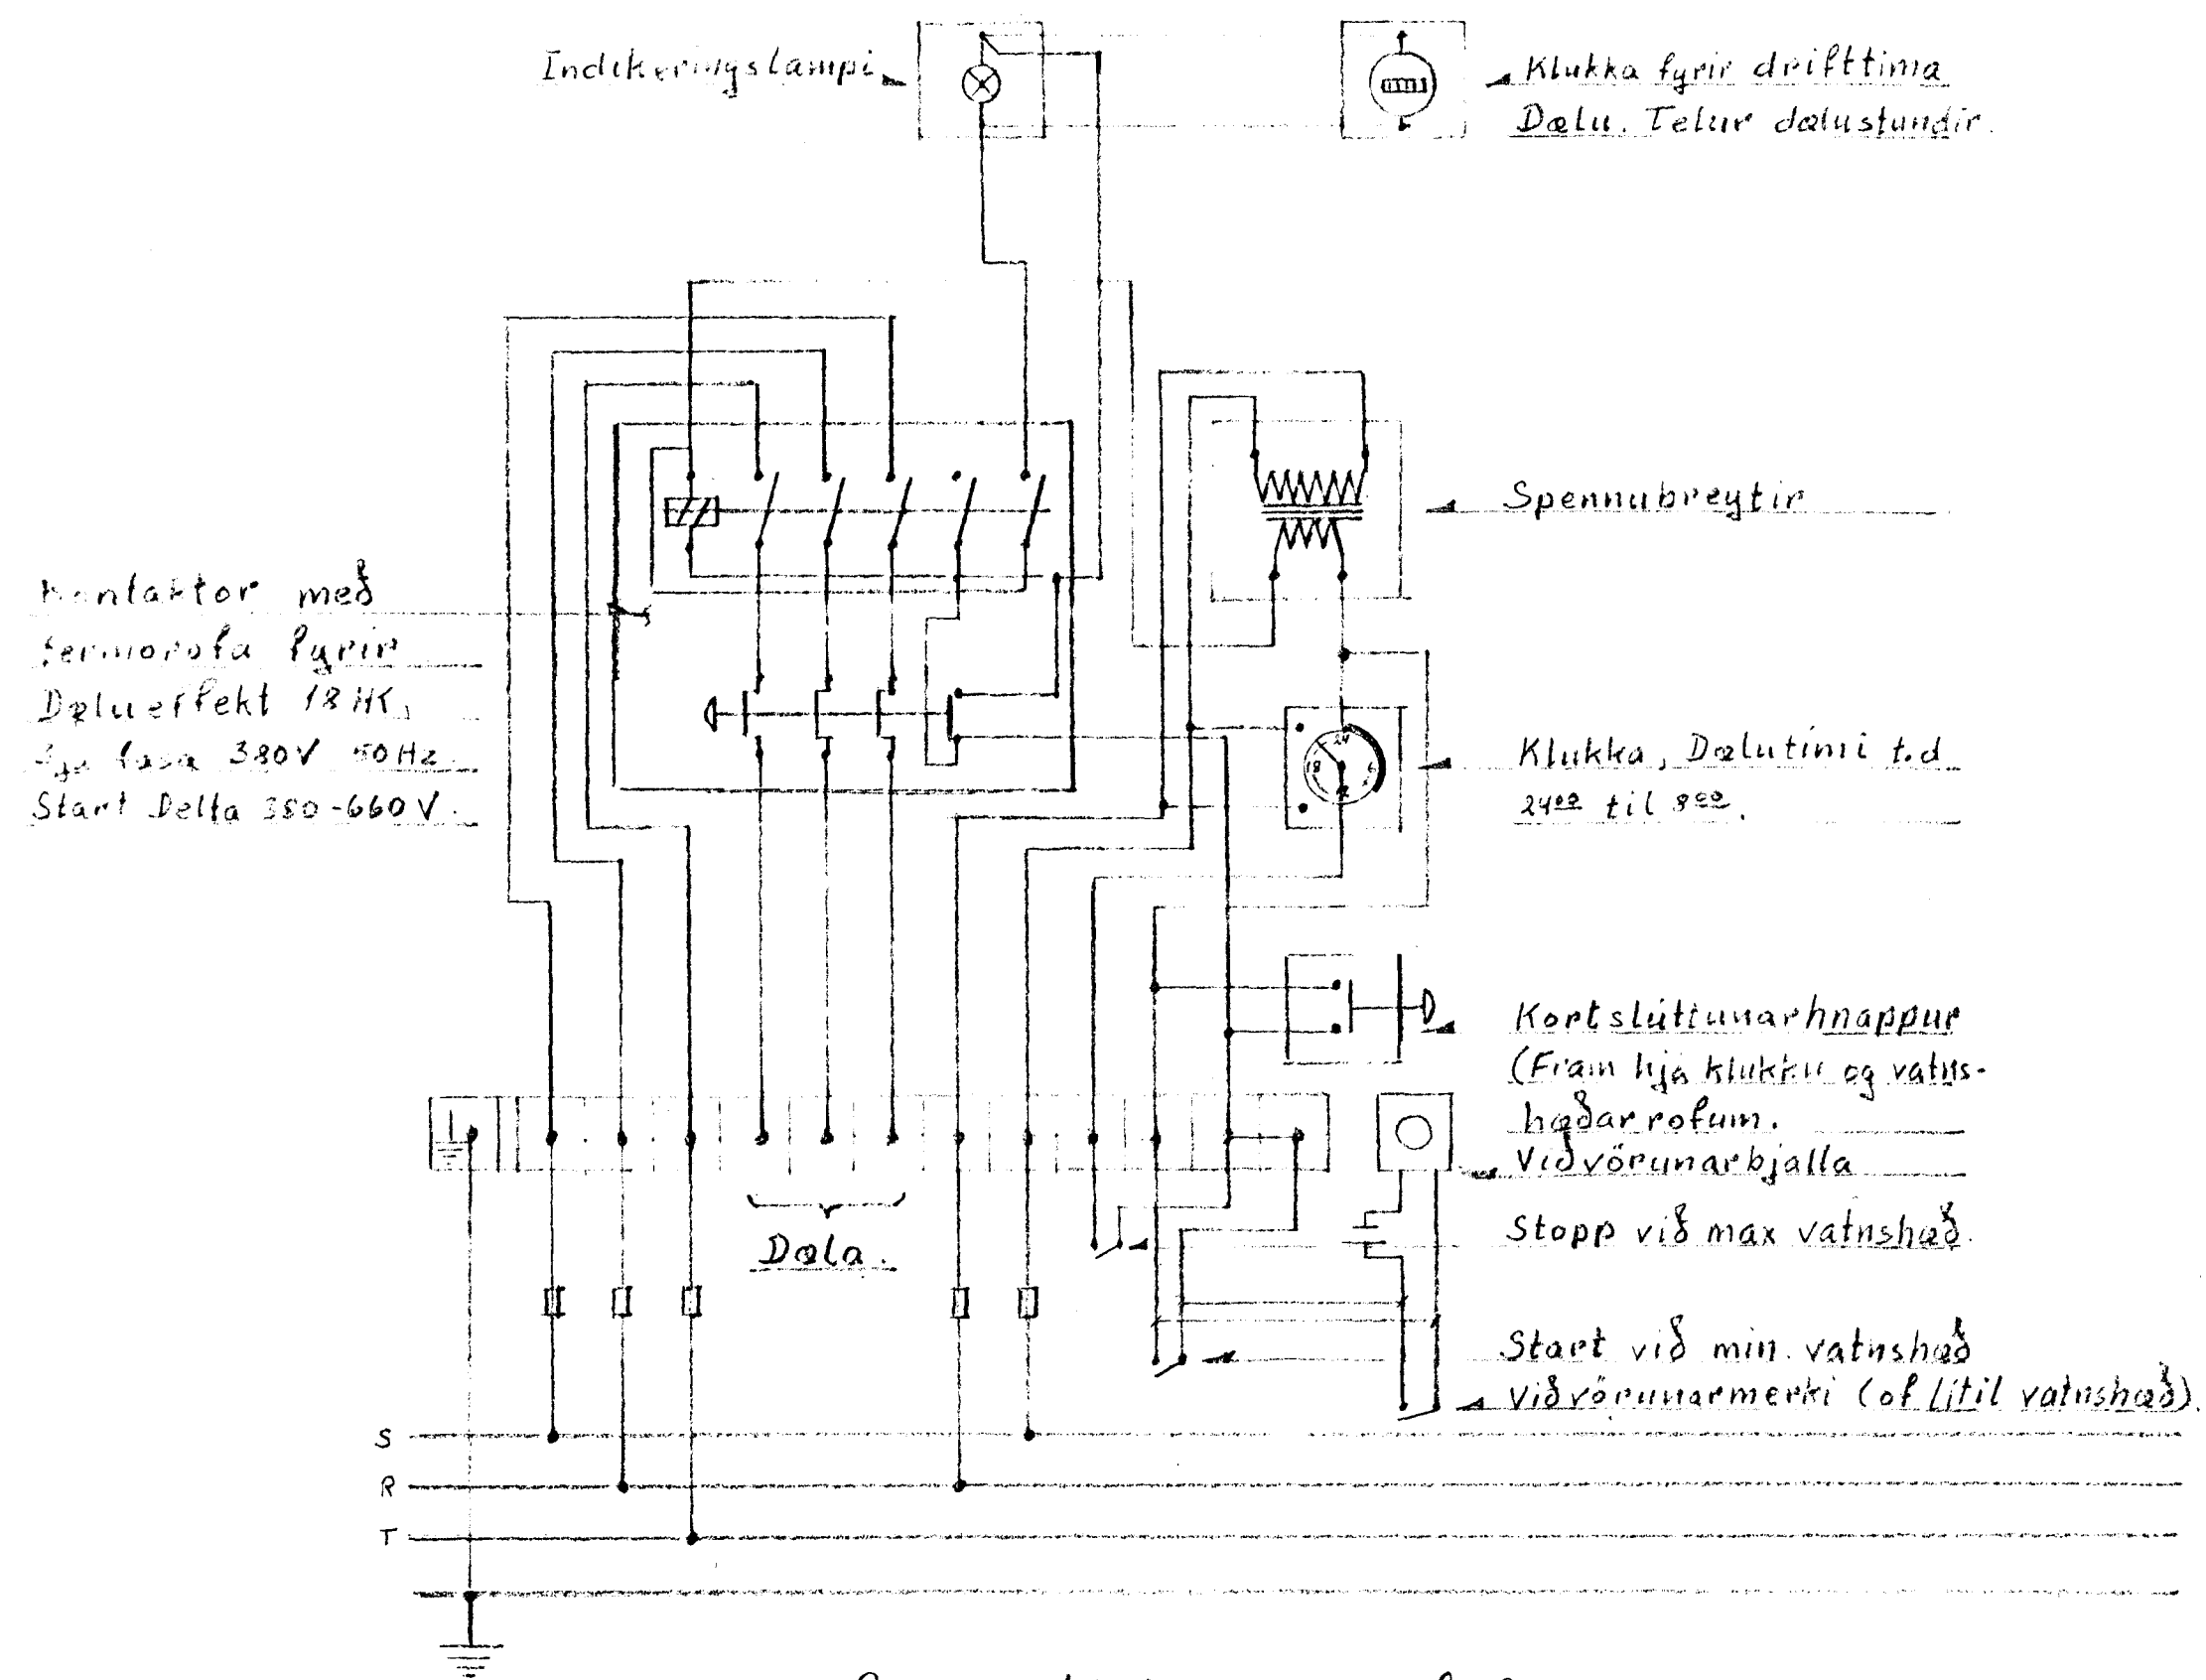 Indikeringslampi
Klukka fyrir drifttima
Dælu. Telur dælustundir.
Spennubreytir
Kontaktor með
termorofa fyrir
Dælueffekt 18 HK,
fasa 380V 50Hz
Start Delta 380-660V.
24
18
6
12
Klukka, Dælutimi t.d
24⁰⁰ til 8⁰⁰.
Kortslúttunarhnappur
(Fram hjá klukku og vatns-
hæðarrofum.
Viðvörunarbjalla
Dæla.
Stopp við max vatnshæð.
Start við min. vatnshæð
Viðvörunarmerki (of lítil vatnshæð).
S
R
T